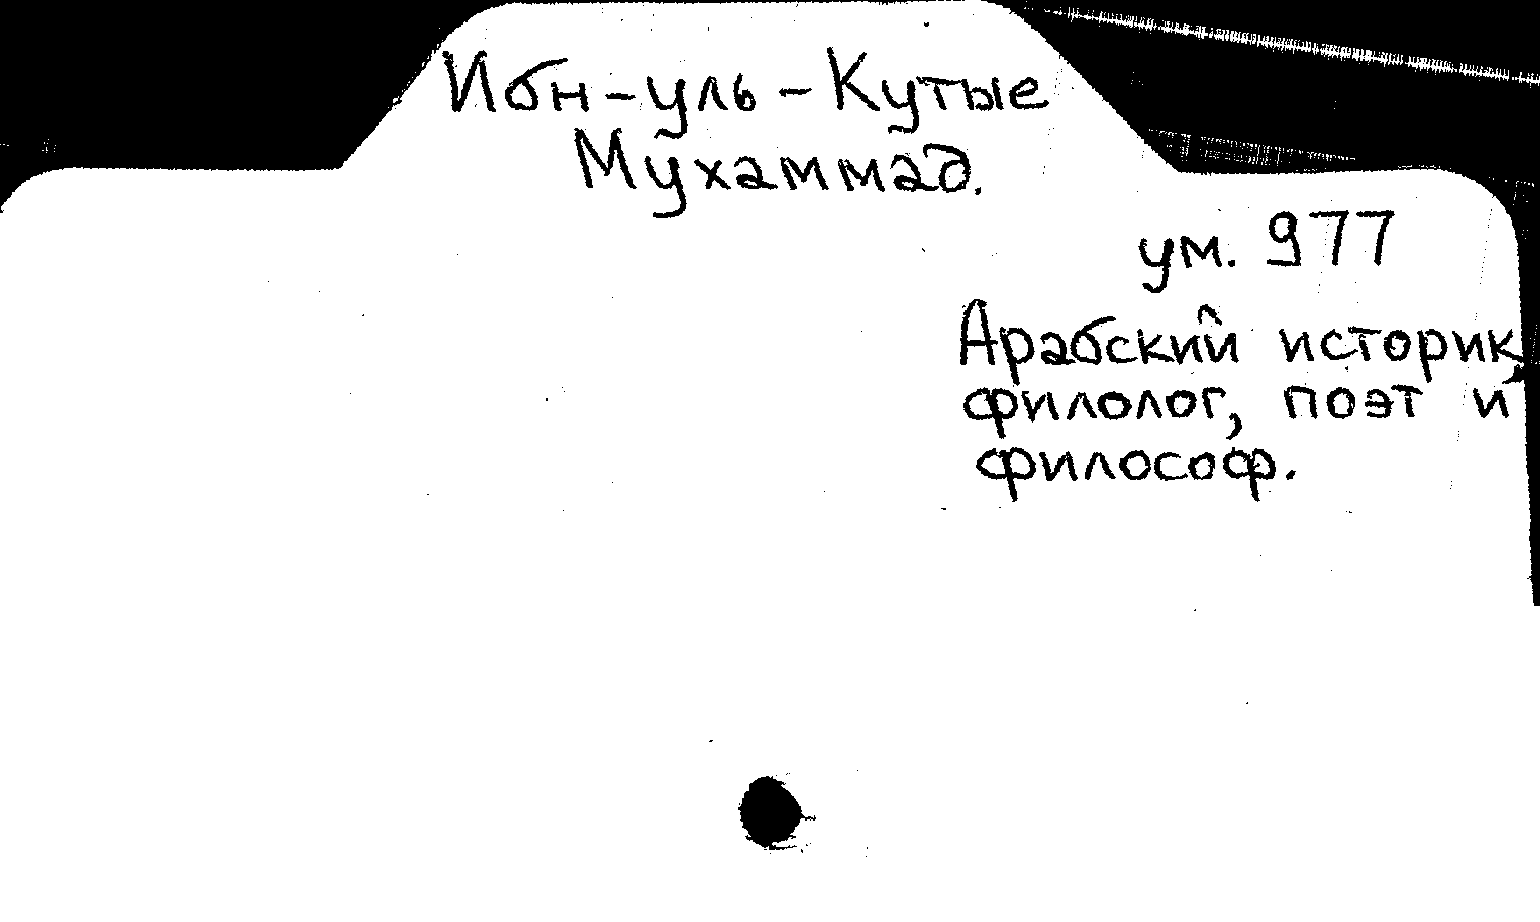 Ибн-уль-Кутые
Мухаммад.
ум. 977
Арабский историк,
филолог, поэт и
философ.